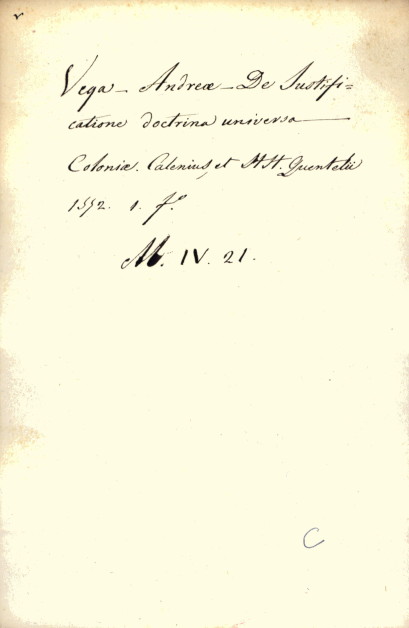 Vega - Andreæ - De Justifi=
catione doctrina universa
Coloniæ. Calenius, et HH. Quentelii
1572. 1. fº
M. IV. 21.
C